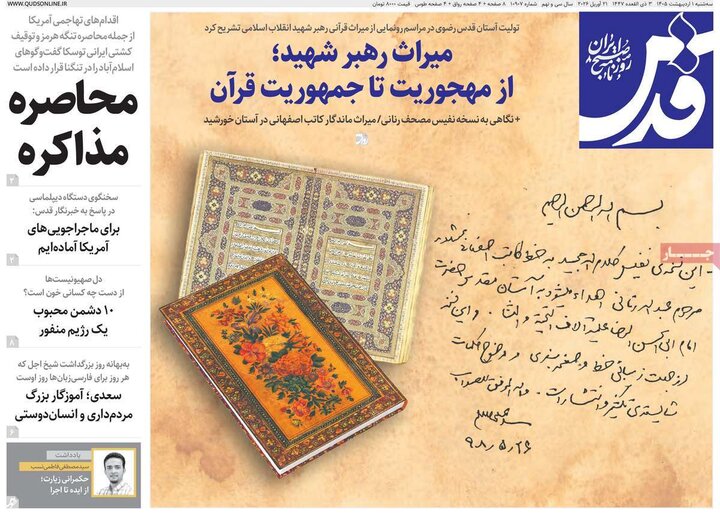 WWW.QUDSONLINE.IR
سه‌شنبه ۱ اردیبهشت ۱۴۰۵ ۳ ذی القعده ۱۴۴۷ ۲۱ آوریل ۲۰۲۶ سال سی و نهم شماره ۱۰۹۰۷ ۸ صفحه + ۴ صفحه رواق + ۴ صفحه طوس قیمت ۸۰۰۰ تومان
قدس
روزنامه صبح ایران
تولیت آستان قدس رضوی در مراسم رونمایی از میراث قرآنی رهبر شهید انقلاب اسلامی تشریح کرد
میراث رهبر شهید؛
از مهجوریت تا جمهوریت قرآن
+ نگاهی به نسخه نفیس مصحف رنانی/ میراث ماندگار کاتب اصفهانی در آستان خورشید
بسم الله الرحمن الرحیم
این نسخه‌ی نفیس کلام الله مجید به خط کاتب اصفهانی
مرحوم رنانی اهداء میشود به آستان مقدس حضرت
امام ابی الحسن الرضا علیه آلاف التحیة و الثناء . و این نسخه
از جهت زیبائی خط و صفحه‌بندی و وضوح کلمات
شایسته‌ی تکثیر و انتشار است .
۹۸/۵/۲۶
جـار
اقدام‌های تهاجمی آمریکا
از جمله محاصره تنگه هرمز و توقیف
کشتی ایرانی توسکا گفت‌وگوهای
اسلام‌آباد را در تنگنا قرار داده است
محاصره
مذاکره
۲
سخنگوی دستگاه دیپلماسی
در پاسخ به خبرنگار قدس:
برای ماجراجویی‌های
آمریکا آماده‌ایم
۲
دل صهیونیست‌ها
از دست چه کسانی خون است؟
۱۰ دشمن محبوب
یک رژیم منفور
۸
به‌بهانه روز بزرگداشت شیخ اجل که
هر روز برای فارسی‌زبان‌ها روز اوست
سعدی؛ آموزگار بزرگ
مردم‌داری و انسان‌دوستی
۶
یادداشت
سیدمصطفی فاطمی‌نسب
حکمرانی زیارت؛
از ایده تا اجرا